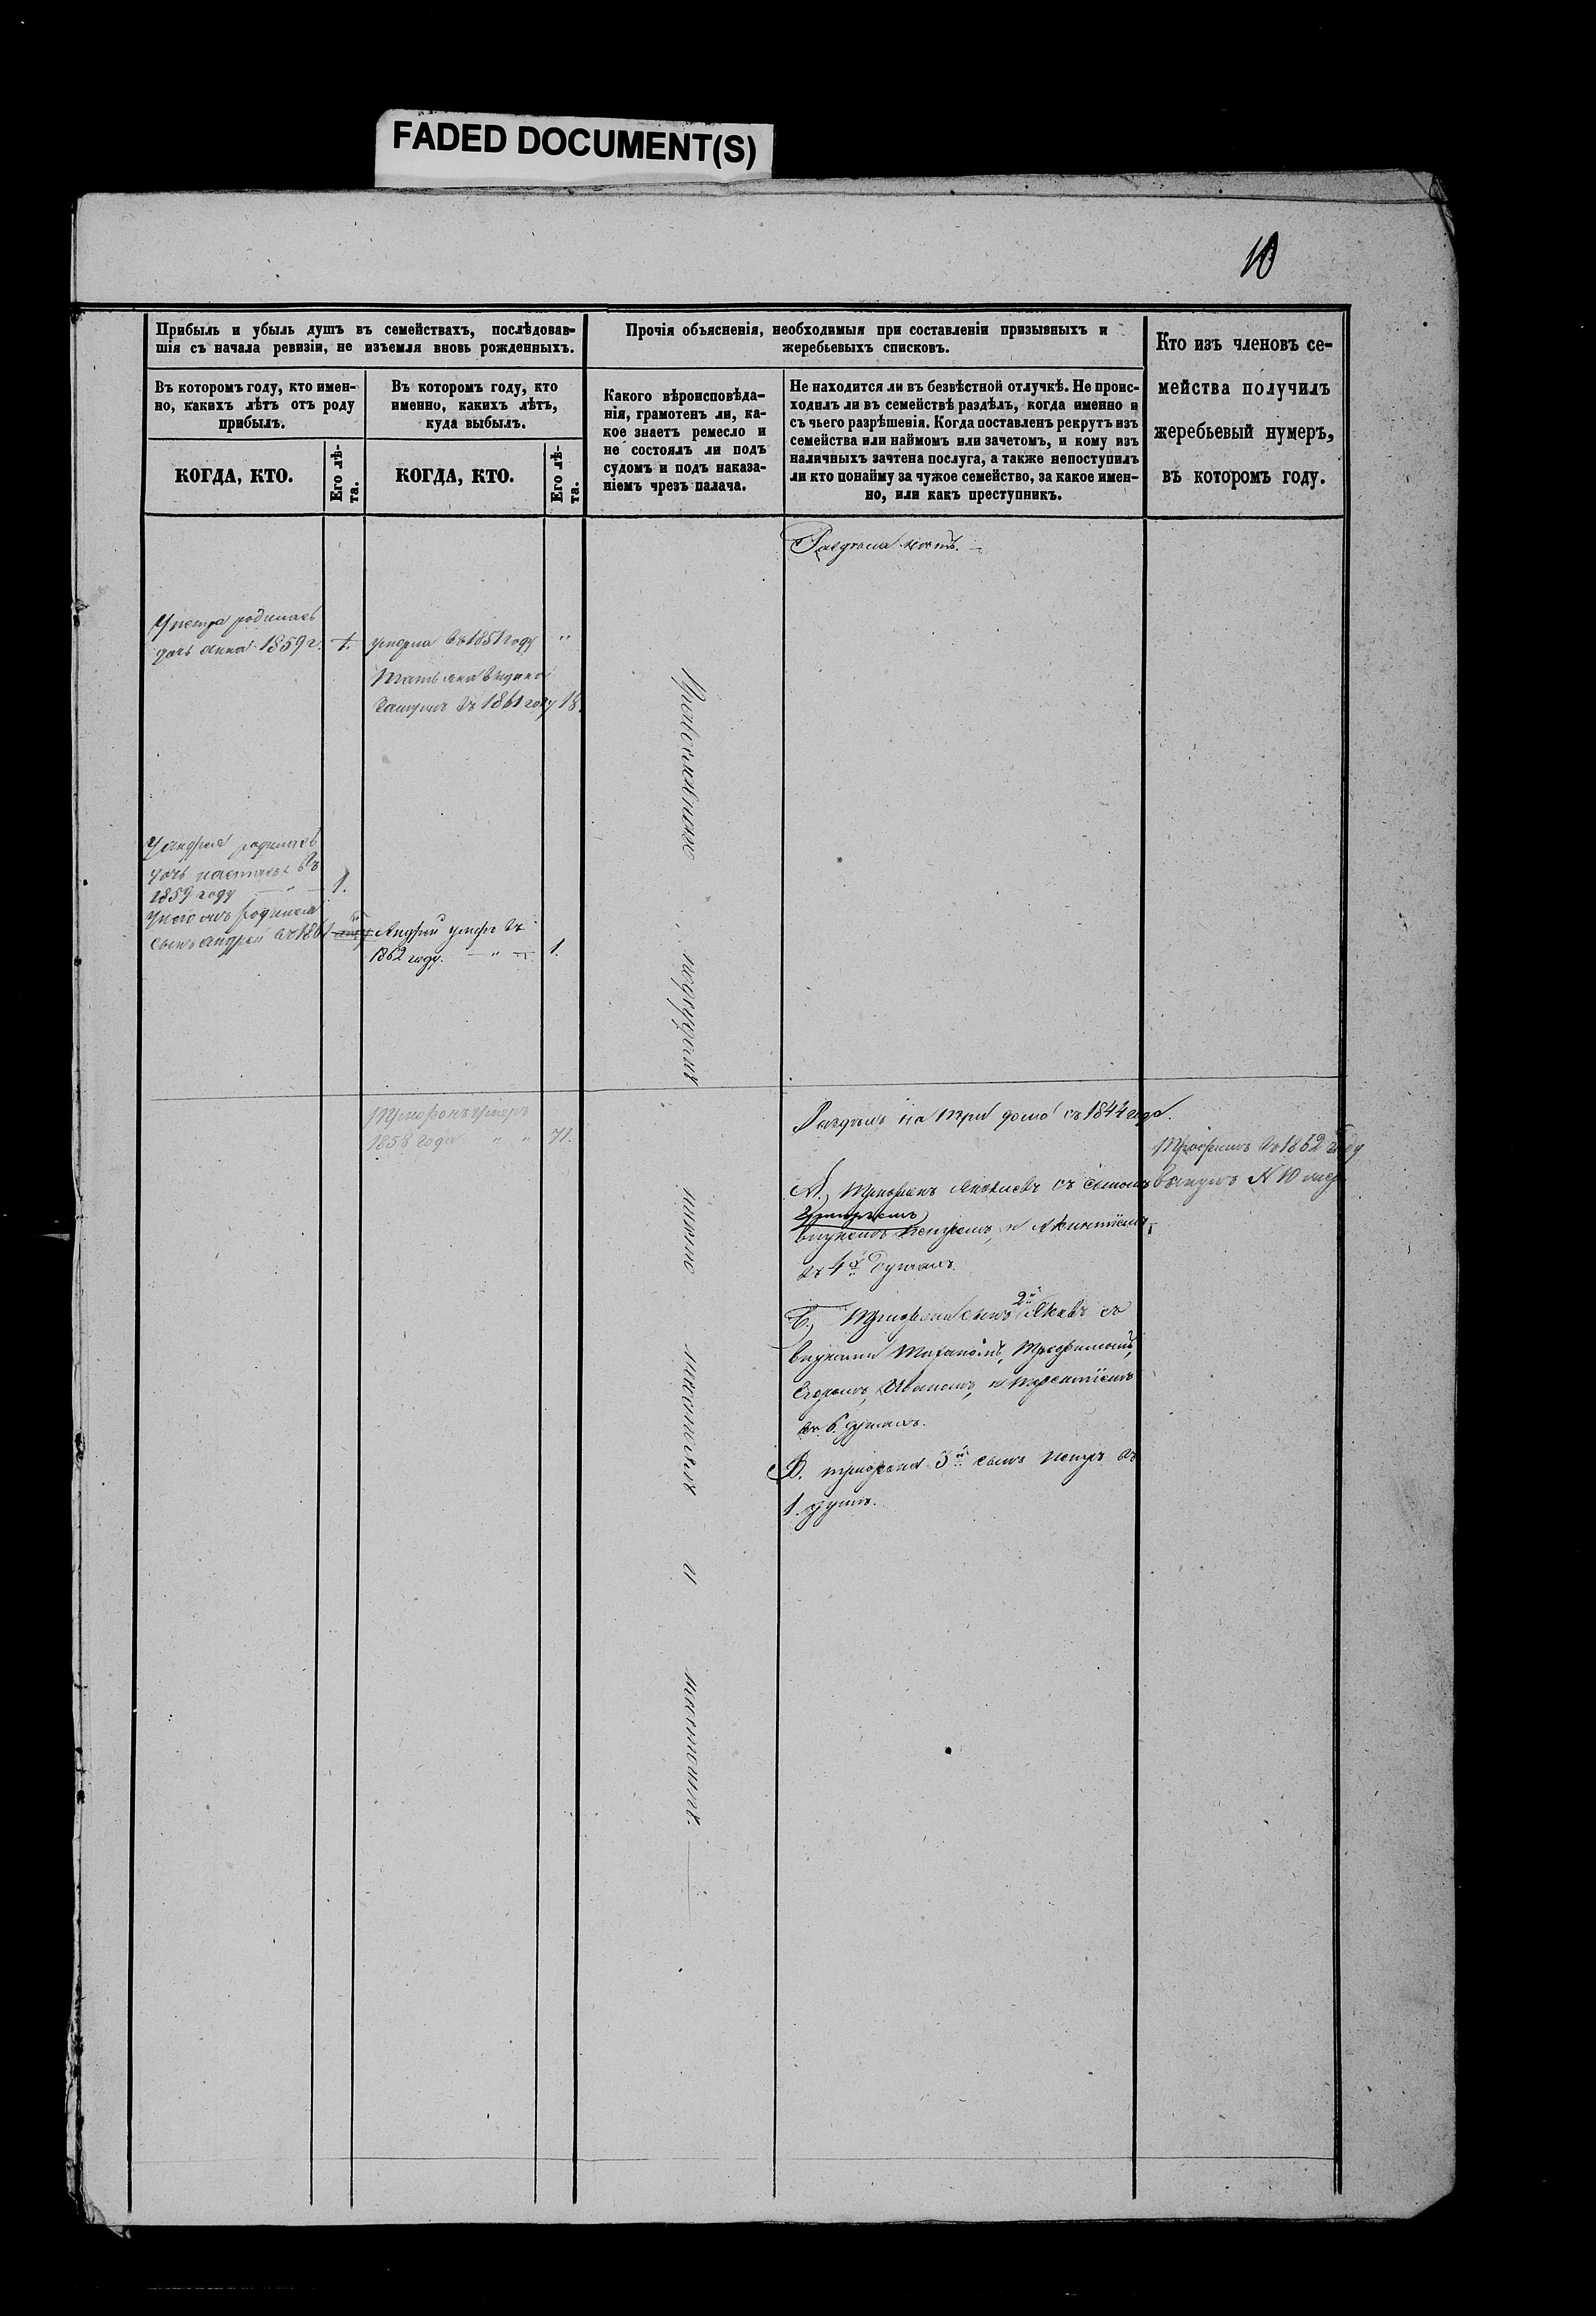 FADED DOCUMENT(S)
10
Прибыль и убыль душъ въ семействахъ, послѣдовав-
шія съ начала ревизіи, не изъемля вновь рожденныхъ.
Въ которомъ году, кто имен-
но, какихъ лѣтъ отъ роду
прибылъ.
КОГДА, КТО.
Его лѣ-
та.
Въ которомъ году, кто
именно, какихъ лѣтъ,
куда выбылъ.
КОГДА, КТО.
Его лѣ-
та.
Прочія объясненія, необходимыя при составленіи призывныхъ и
жеребьевыхъ списковъ.
Какого вѣроисповѣда-
нія, грамотенъ ли, ка-
кое знаетъ ремесло и
не состоялъ ли подъ
судомъ и подъ наказа-
ніемъ чрезъ палача.
Не находится ли въ безвѣстной отлучкѣ. Не проис-
ходилъ ли въ семействѣ раздѣлъ, когда именно и
съ чьего разрѣшенія. Когда поставленъ рекрутъ изъ
семейства или наймомъ или зачетомъ, и кому изъ
наличныхъ зачтена послуга, а также непоступилъ
ли кто понайму за чужое семейство, за какое имен-
но, или какъ преступникъ.
Кто изъ членовъ се-
мейства получилъ
жеребьевый нумеръ,
въ которомъ году.
У петра родилась
дочь анна 1859 г.
1.
умерла въ 1851 году
"
Татьяна выдана
замужъ въ 1861 году 18.
У андрея родилась
дочь настасья въ
1859 году — " — 1.
родился
сынъ андрей въ 1861
Андрей умеръ въ
1862 году. — " — 1.
Трифонъ умеръ
1858 года " " 71.
Православнаго
подсудомъ
никто
несостоялъ
и
несостоитъ.
Раздела нѣтъ. —
Раздѣлъ на три дома съ 1844 года.
А.) Трифонъ Яковлевъ съ сыномъ
внукомъ Петромъ, и
въ 4х душахъ.
Б.) Трифона сынъ 2й Яковъ съ
внуками Трофимомъ,
Егоромъ, Иваномъ, и терентіемъ
въ 6. душахъ.
В. трифона 3й сынъ петръ въ
1. душѣ.
Трофимъ въ 1862 году
вынулъ № 10